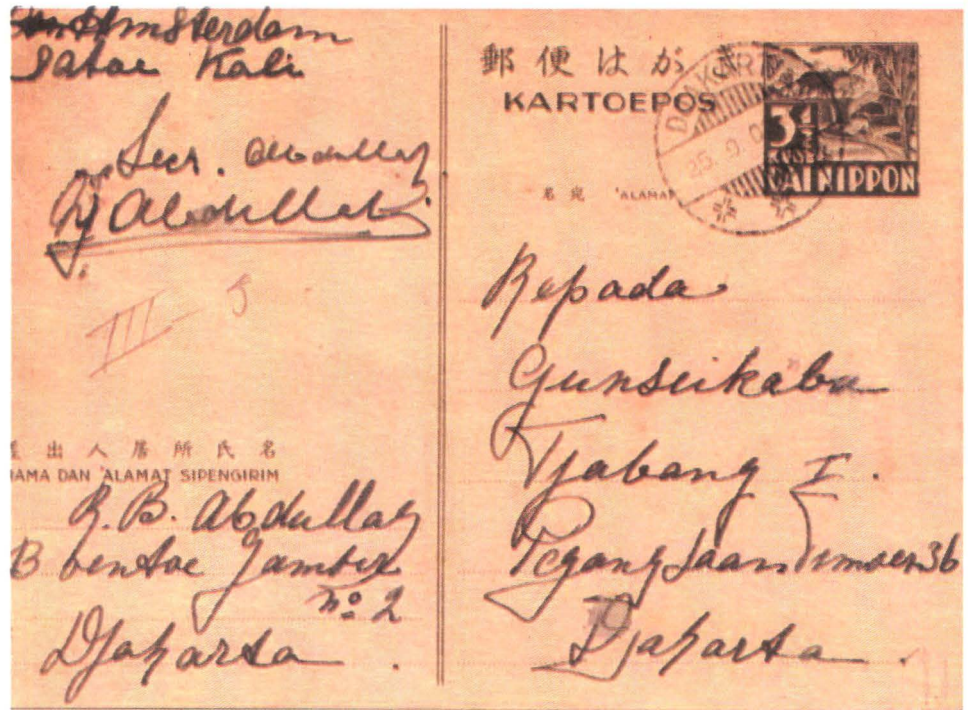 Amsterdam
Satoe Kali
Secr. Abdullah
Abdullah
III 5
出人居所氏名
NAMA DAN 'ALAMAT SIPENGIRIM
R. B. Abdullah
B bentoe Jamber
no 2
Djakarta
郵便はがき
KARTOEPOS
DJAKARTA
25. 9. 0
3½
DAI NIPPON
名宛 'ALAMAT
Kepada
Gunseikabu
Tjabang I.
Pegangsaan Timoer 36
Djakarta.